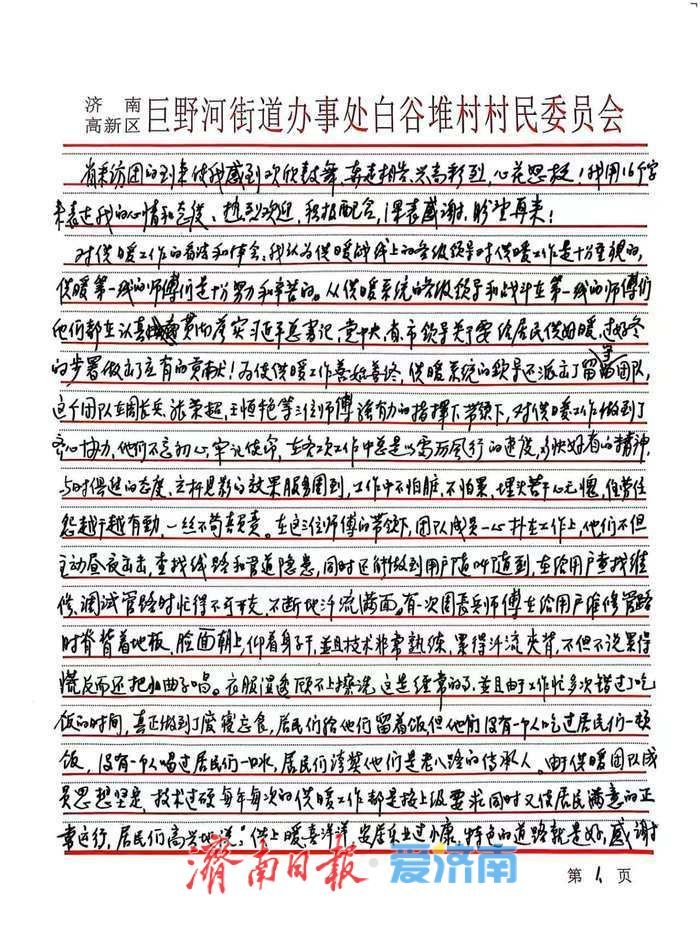 济南
高新区 巨野河街道办事处白谷堆村村民委员会
有来访团的到来使我感到欢欣鼓舞、奔走相告、兴高彩烈、心花怒放！我用16个字
来表达我的心情和态度、热烈欢迎、积极配合、深表感谢、盼望再来！
对供暖工作的看法和体会、我认为供暖战线上的各级领导对供暖工作是十分重视的，
供暖第一线的师傅们是十分努力和辛苦的。从供暖系统的各级领导和战斗在第一线的师傅们
他们都在认真贯彻落实习近平总书记、党中央、省、市领导关于要给居民供好暖、过好冬
的步署做出了应有的贡献！为使供暖工作善始善终，供暖系统的领导还派出了留守团队，
这个团队在周长兵、张荣超、王恒艳等三位师傅强有力的指挥下、带领下，对供暖工作做到了
齐心协力，他们不忘初心，牢记使命，在各次工作中总是以雷厉风行的速度，多快好省的精神，
与时俱进的态度、立杆见影的效果服务周到，工作中不怕脏、不怕累，埋头苦干心无愧，任劳任
怨越干越有劲，一丝不苟真负责。在这三位师傅的带领下，团队成员一心扑在工作上，他们不但
主动昼夜出击，查找线路和管道隐患，同时还能做到用户随叫随到，在给用户查找维
修、调试管路时忙得不可开交，不断地汗流满面。有一次周长兵师傅在给用户维修管路
时脊背着地板，脸面朝上，仰着身子干，並且技术非常熟练，累得汗流夹背，不但不说累得
慌反而还把小曲子唱。衣服湿透顾不上擦洗，这是经常的事，並且由于工作忙多次错过了吃
饭的时间，真正做到了废寝忘食，居民们给他们留着饭，但他们没有一个人吃过居民们一顿
饭，没有一个人喝过居民们一口水，居民们夸奖他们是老八路的传承人。由于供暖团队成
员思想坚定、技术过硬每年每次的供暖工作都是按上级要求同时又使居民满意的正
常运行，居民们高兴地说：“供上暖、喜洋洋、安居乐业过小康，特色的道路就是好，感谢
济南日报·爱济南
第1页